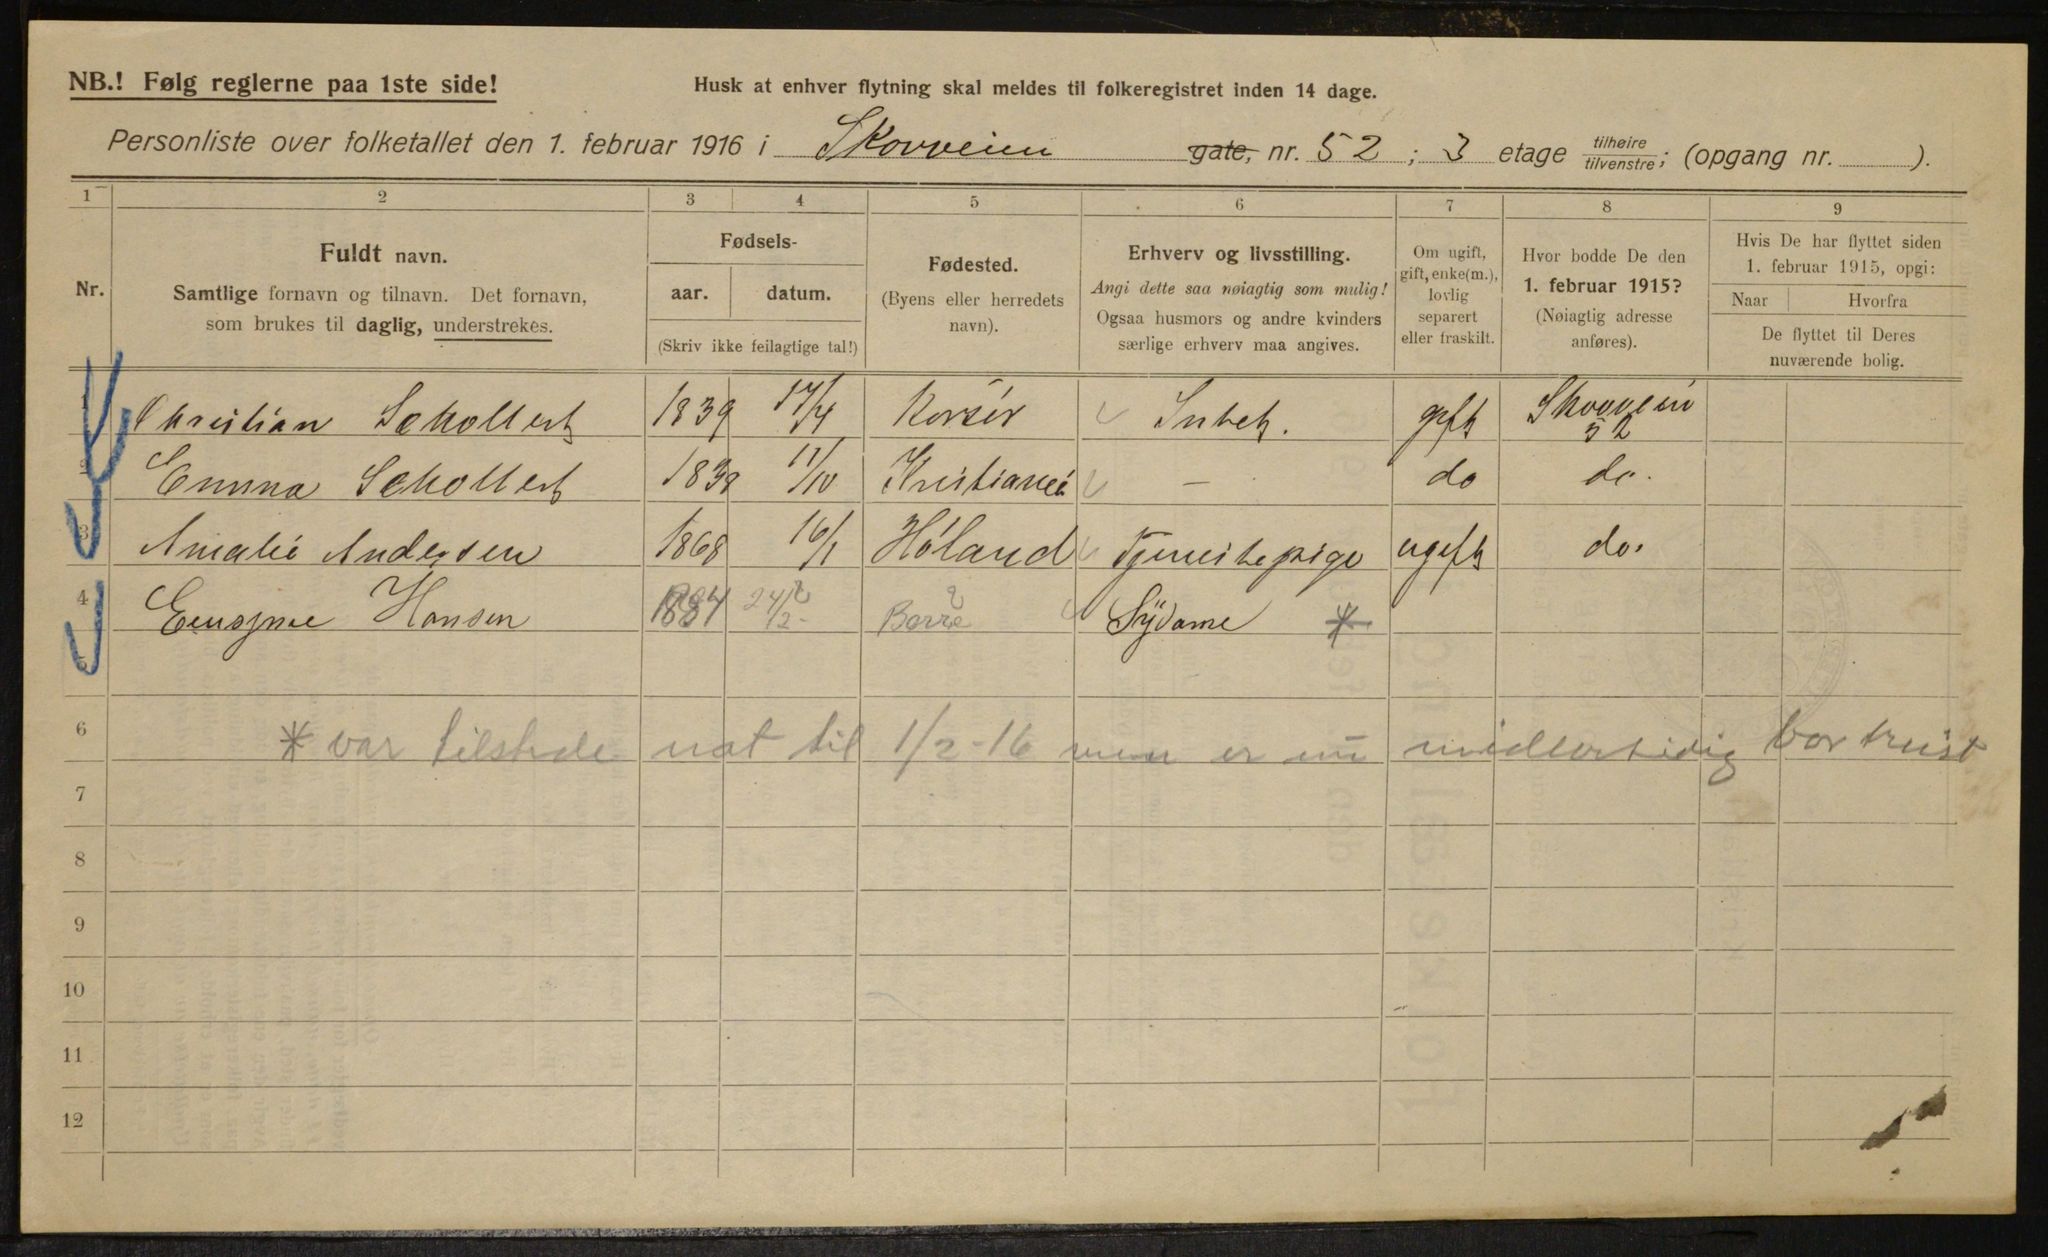 NB.! Følg reglerne paa 1ste side!
Husk at enhver flytning skal meldes til folkeregistret inden 14 dage.
Personliste over folketallet den 1. februar 1916 i Skovveien gate, nr. 52; 3 etage tilhøire/tilvenstre; (opgang nr. ).
1 2 3 4 5 6 7 8 9
Nr.
Fuldt navn.
Samtlige fornavn og tilnavn. Det fornavn,
som brukes til daglig, understrekes.
Fødsels-
aar. datum.
(Skriv ikke feilagtige tal!)
Fødested.
(Byens eller herredets
navn).
Erhverv og livsstilling.
Angi dette saa nøiagtig som mulig!
Ogsaa husmors og andre kvinders
særlige erhverv maa angives.
Om ugift,
gift, enke(m.),
lovlig
separert
eller fraskilt.
Hvor bodde De den
1. februar 1915?
(Nøiagtig adresse
anføres).
Hvis De har flyttet siden
1. februar 1915, opgi:
Naar Hvorfra
De flyttet til Deres
nuværende bolig.
1 Christian Schollert 1839 17/4 Korsör gift Skovvein 52
2 Emma Schollert 1839 11/10 Kristiania — do do.
3 Amalie Andersen 1868 16/1 Höland Tjenestepige ugift do.
4 Hansen 1884 24/2 Borre Sÿdame *
5
6 * var tilstede nat til 1/2-16 men er nu midlertidig bortreist
7
8
9
10
11
12